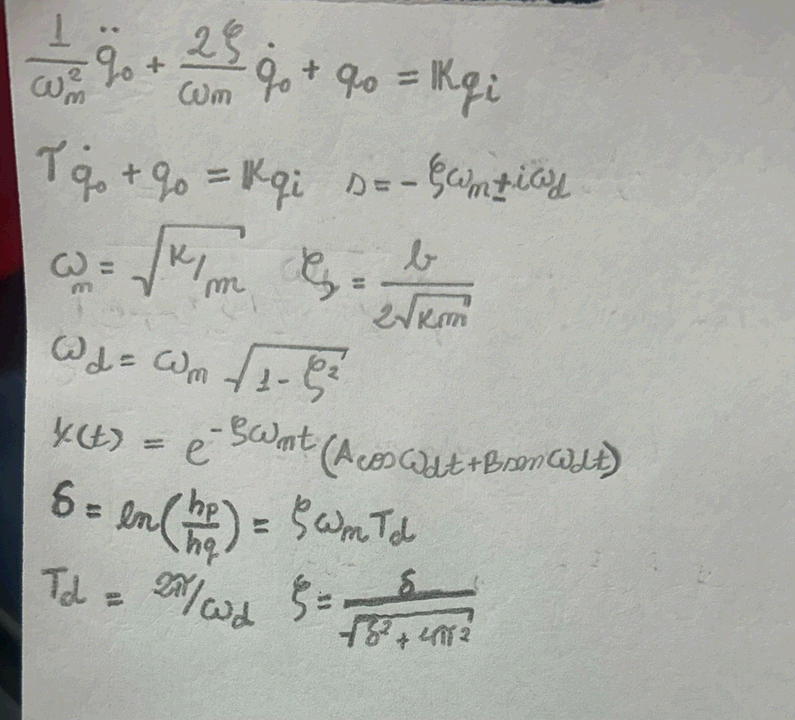 1/ω_m² q̈₀ + 2ξ/ω_m q̇₀ + q₀ = Kq_i
τq̇₀ + q₀ = Kq_i   s = -ξω_m ± iω_d
ω_m = √(K/m)   ξ = b/(2√(Km))
ω_d = ω_m √(1-ξ²)
x(t) = e^(-ξω_m t) (A cos ω_d t + B sen ω_d t)
δ = ln(h_p/h_q) = ξω_m T_d
T_d = 2π/ω_d   ξ = δ/√(δ² + 4π²)